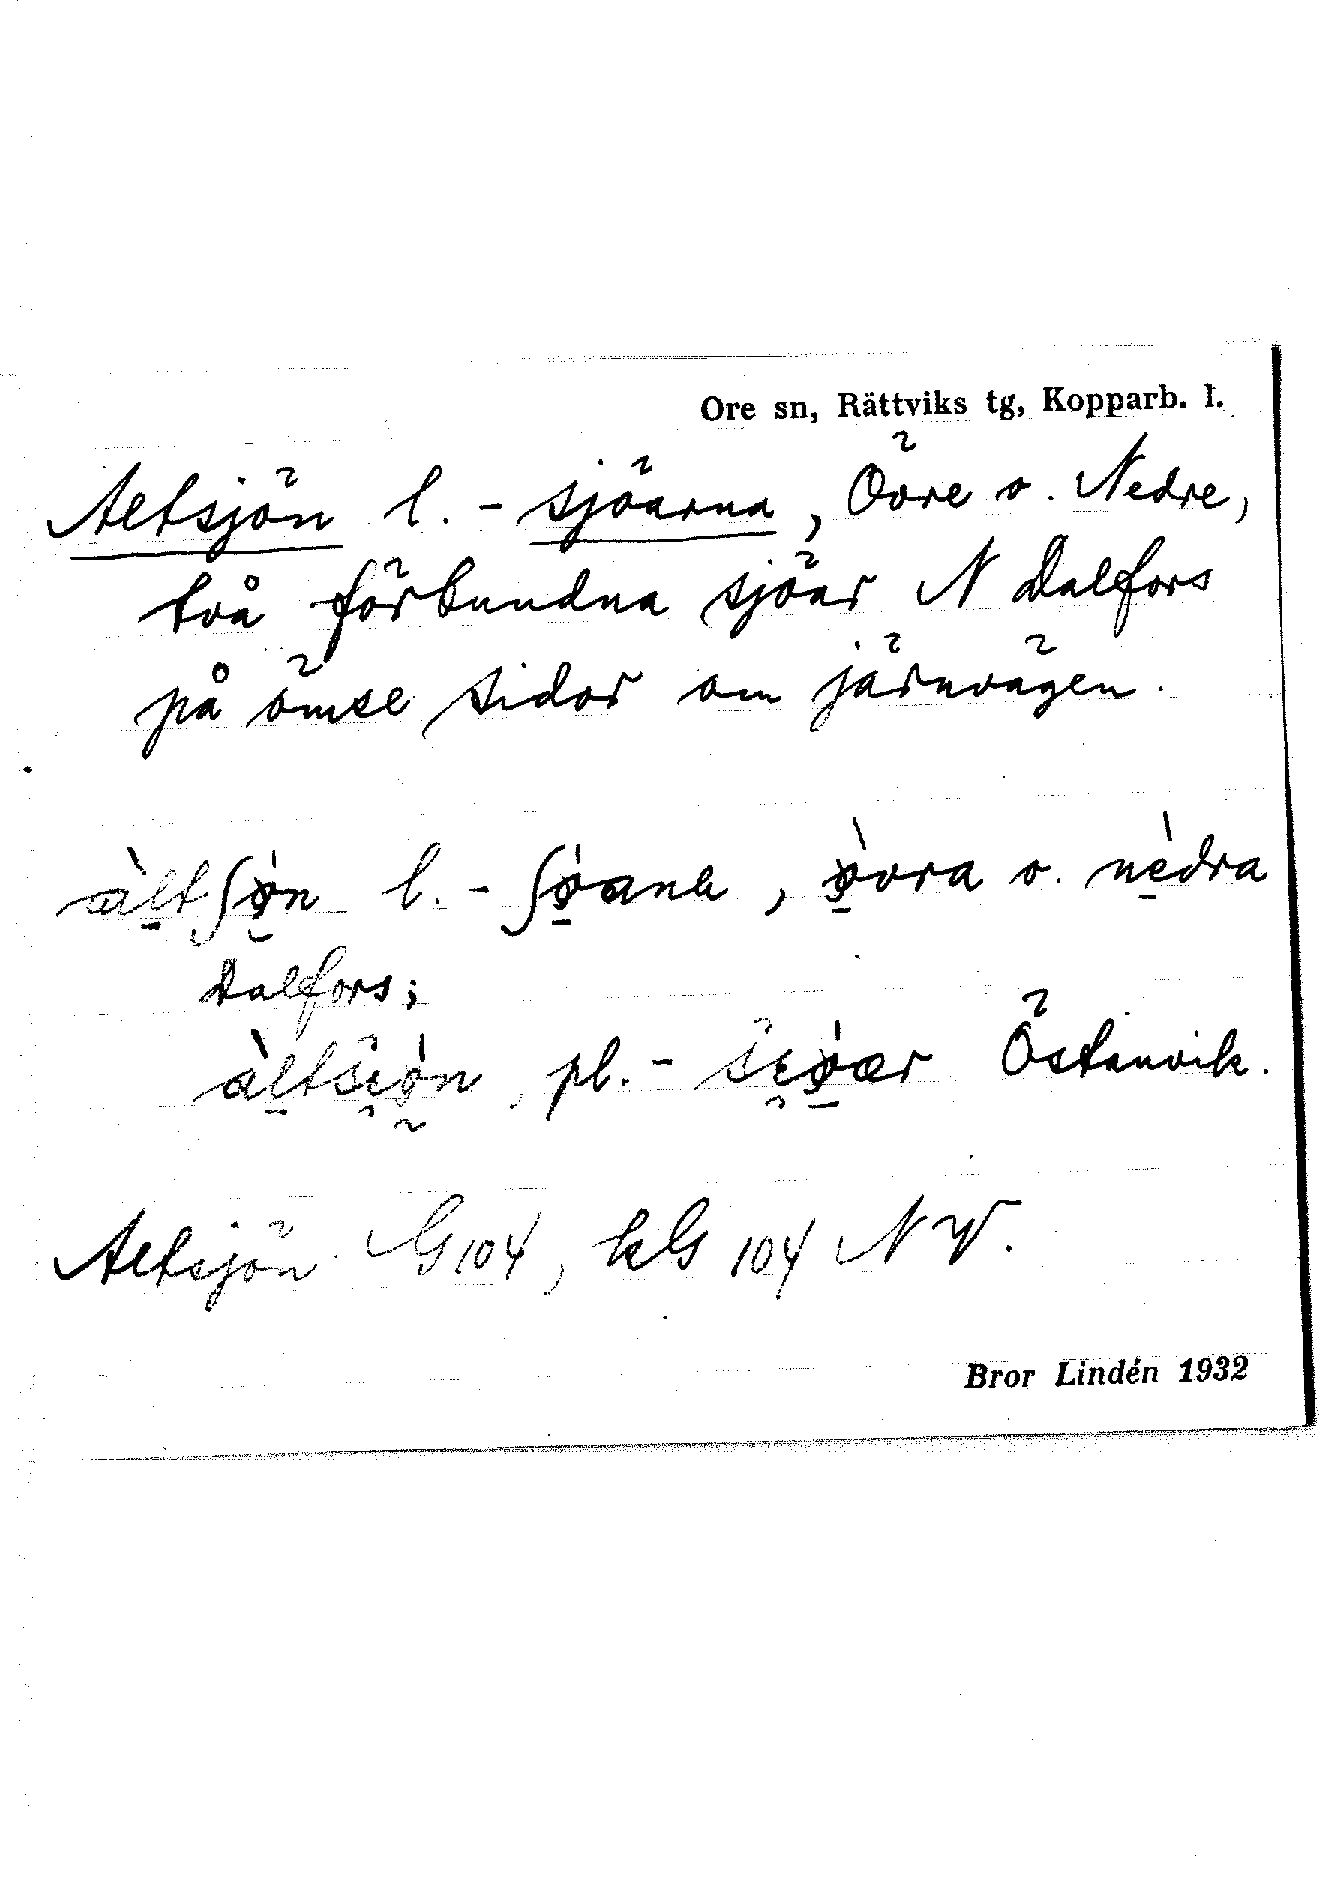 Ore sn, Rättviks tg, Kopparb. l.
Altsjön l. -sjöarna, Övre o. Nedre,
två förbundna sjöar N Dalfors
på ömse sidor om järnvägen.
l. - , o.
Dalfors;
pl. - Östanvik.
Altsjön G104, kG 104 NV.
Bror Lindén 1932